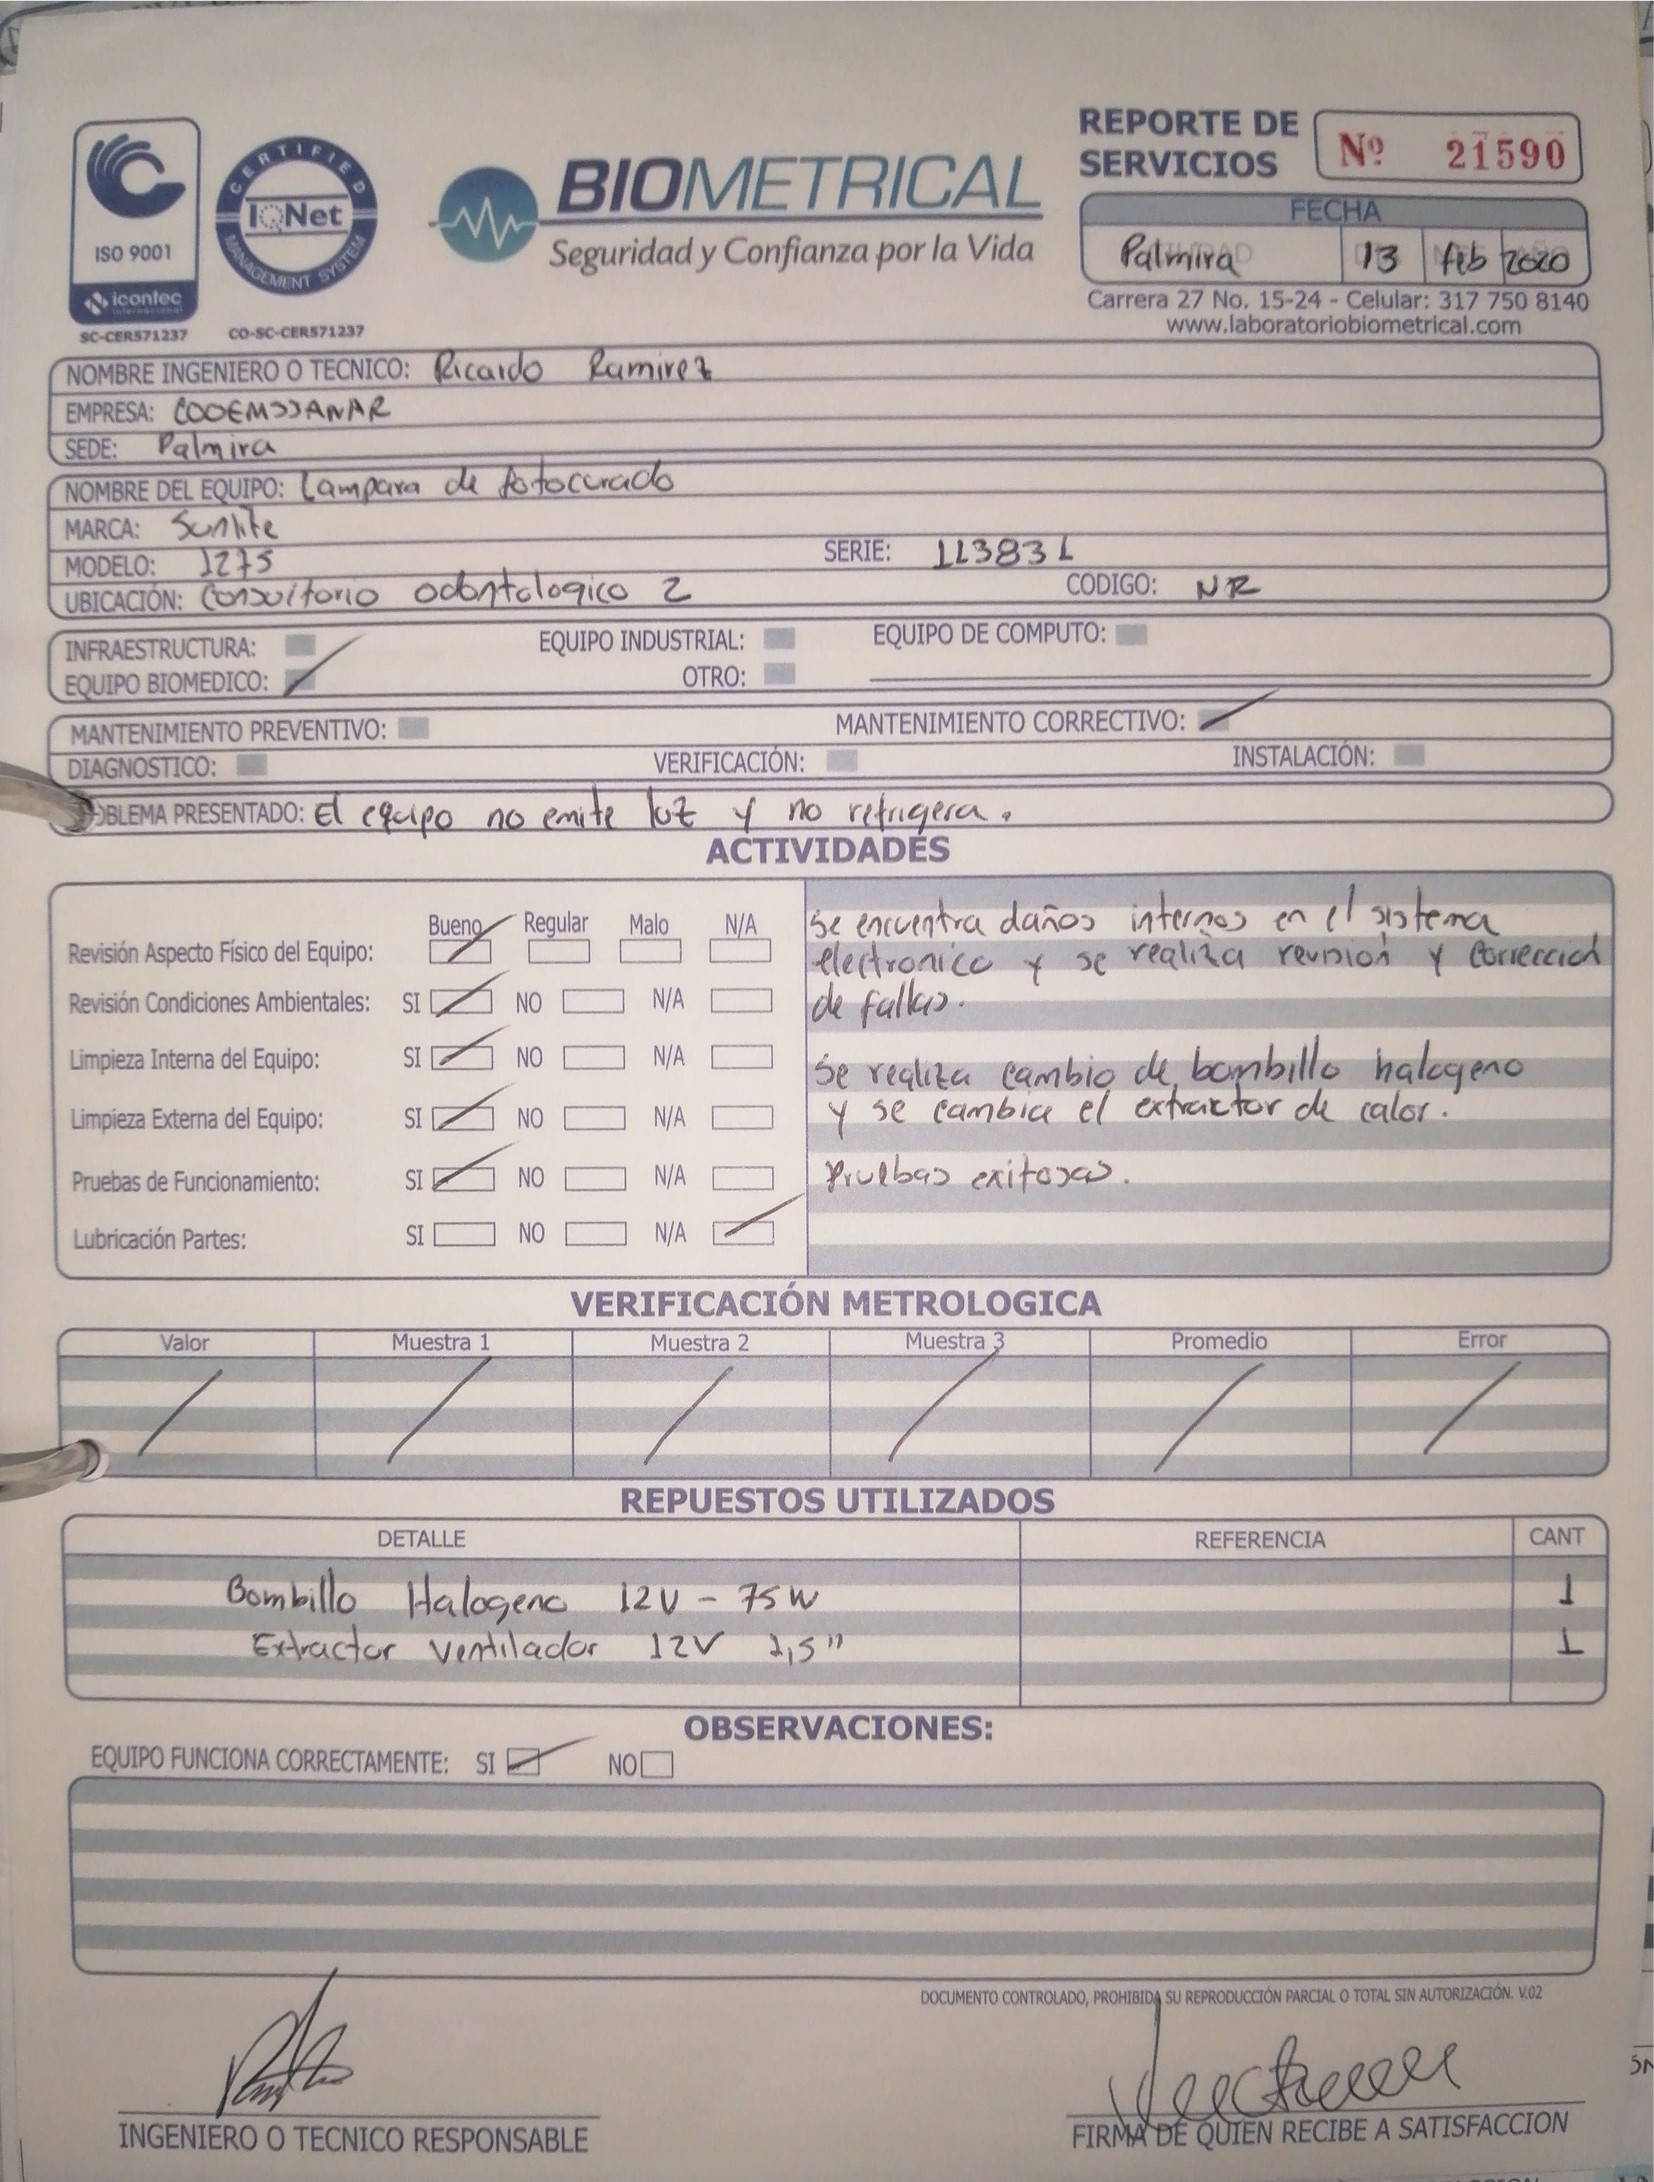 REPORTE DE
SERVICIOS
Nº 21590
CERTIFIED
IQNet
MANAGEMENT SYSTEM
ISO 9001
icontec
internacional
SC-CER571237
CO-SC-CER571237
BIOMETRICAL
Seguridad y Confianza por la Vida
FECHA
Palmira 13 feb 2020
Carrera 27 No. 15-24 - Celular: 317 750 8140
www.laboratoriobiometrical.com
NOMBRE INGENIERO O TECNICO: Ricardo Ramirez
EMPRESA: COOEMSSANAR
SEDE: Palmira
NOMBRE DEL EQUIPO: Lampara de fotocurado
MARCA: Sunlite
MODELO: 1275 SERIE: 113831
UBICACIÓN: Consultorio odontologico 2 CODIGO: NR
INFRAESTRUCTURA: EQUIPO INDUSTRIAL: EQUIPO DE COMPUTO:
EQUIPO BIOMEDICO: OTRO:
MANTENIMIENTO PREVENTIVO: MANTENIMIENTO CORRECTIVO:
DIAGNOSTICO: VERIFICACIÓN: INSTALACIÓN:
OBLEMA PRESENTADO: El equipo no emite luz y no refrigera.
ACTIVIDADES
Bueno Regular Malo N/A
Revisión Aspecto Físico del Equipo:
Revisión Condiciones Ambientales: SI NO N/A
Limpieza Interna del Equipo: SI NO N/A
Limpieza Externa del Equipo: SI NO N/A
Pruebas de Funcionamiento: SI NO N/A
Lubricación Partes: SI NO N/A
Se encuentra daños internos en el sistema
electronico y se realiza revision y correccion
de fallas.
Se realiza cambio de bombillo halogeno
y se cambia el extractor de calor.
Pruebas exitosas.
VERIFICACIÓN METROLOGICA
Valor Muestra 1 Muestra 2 Muestra 3 Promedio Error
REPUESTOS UTILIZADOS
DETALLE REFERENCIA CANT
Bombillo Halogeno 12V - 75W 1
Extractor ventilador 12V 1,5" 1
OBSERVACIONES:
EQUIPO FUNCIONA CORRECTAMENTE: SI NO
DOCUMENTO CONTROLADO, PROHIBIDA SU REPRODUCCIÓN PARCIAL O TOTAL SIN AUTORIZACIÓN. V.02
INGENIERO O TECNICO RESPONSABLE
FIRMA DE QUIEN RECIBE A SATISFACCION